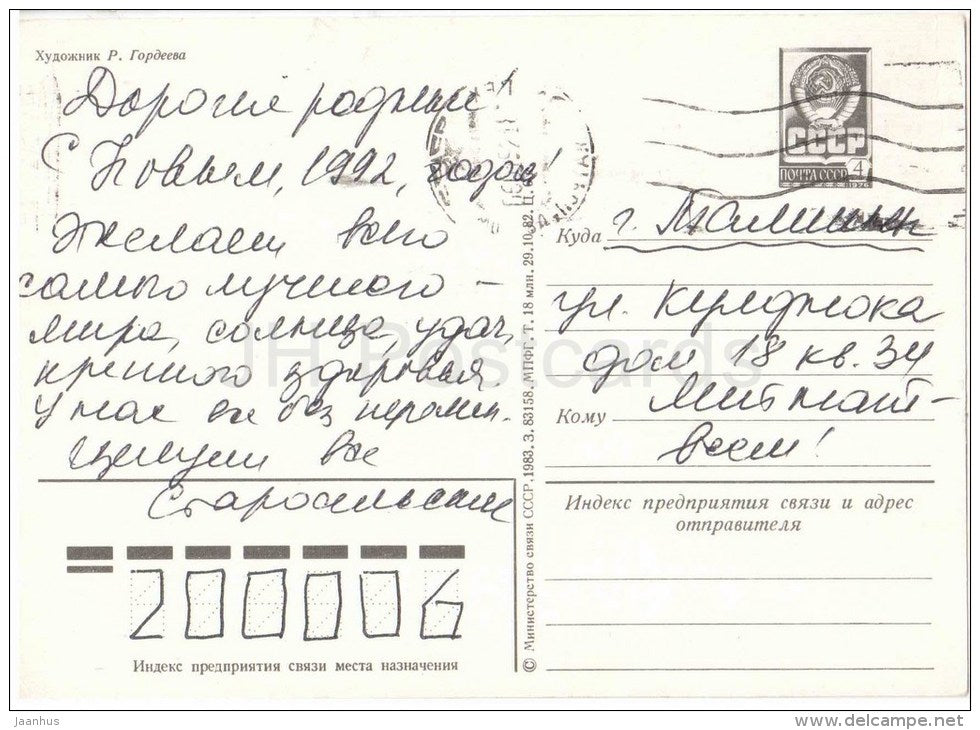 Художник Р. Гордеева
Дорогие родные!
С Новым, 1992, годом!
Желаем всего
самого лучшего –
мира, солнца, удач,
крепкого здоровья.
У нас все без перемен.
Целуем все
Старосельские
СССР
ПОЧТА СССР 4
1976
Куда г. Таллинн
ул.
дом 18 кв. 34
Кому
всем!
Индекс предприятия связи и адрес
отправителя
200006
Индекс предприятия связи места назначения
© Министерство связи СССР. 1983. З. 83158. МПФГ. Т. 18 млн. 29.10.82. Ц.
IH Postcards
jaanhus
www.delcampe.net